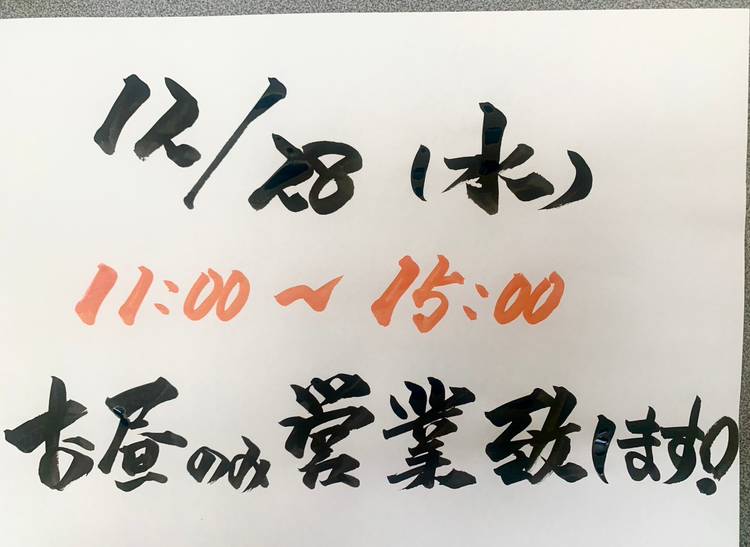 12/28(水)
11:00~15:00
お昼のみ営業致します!